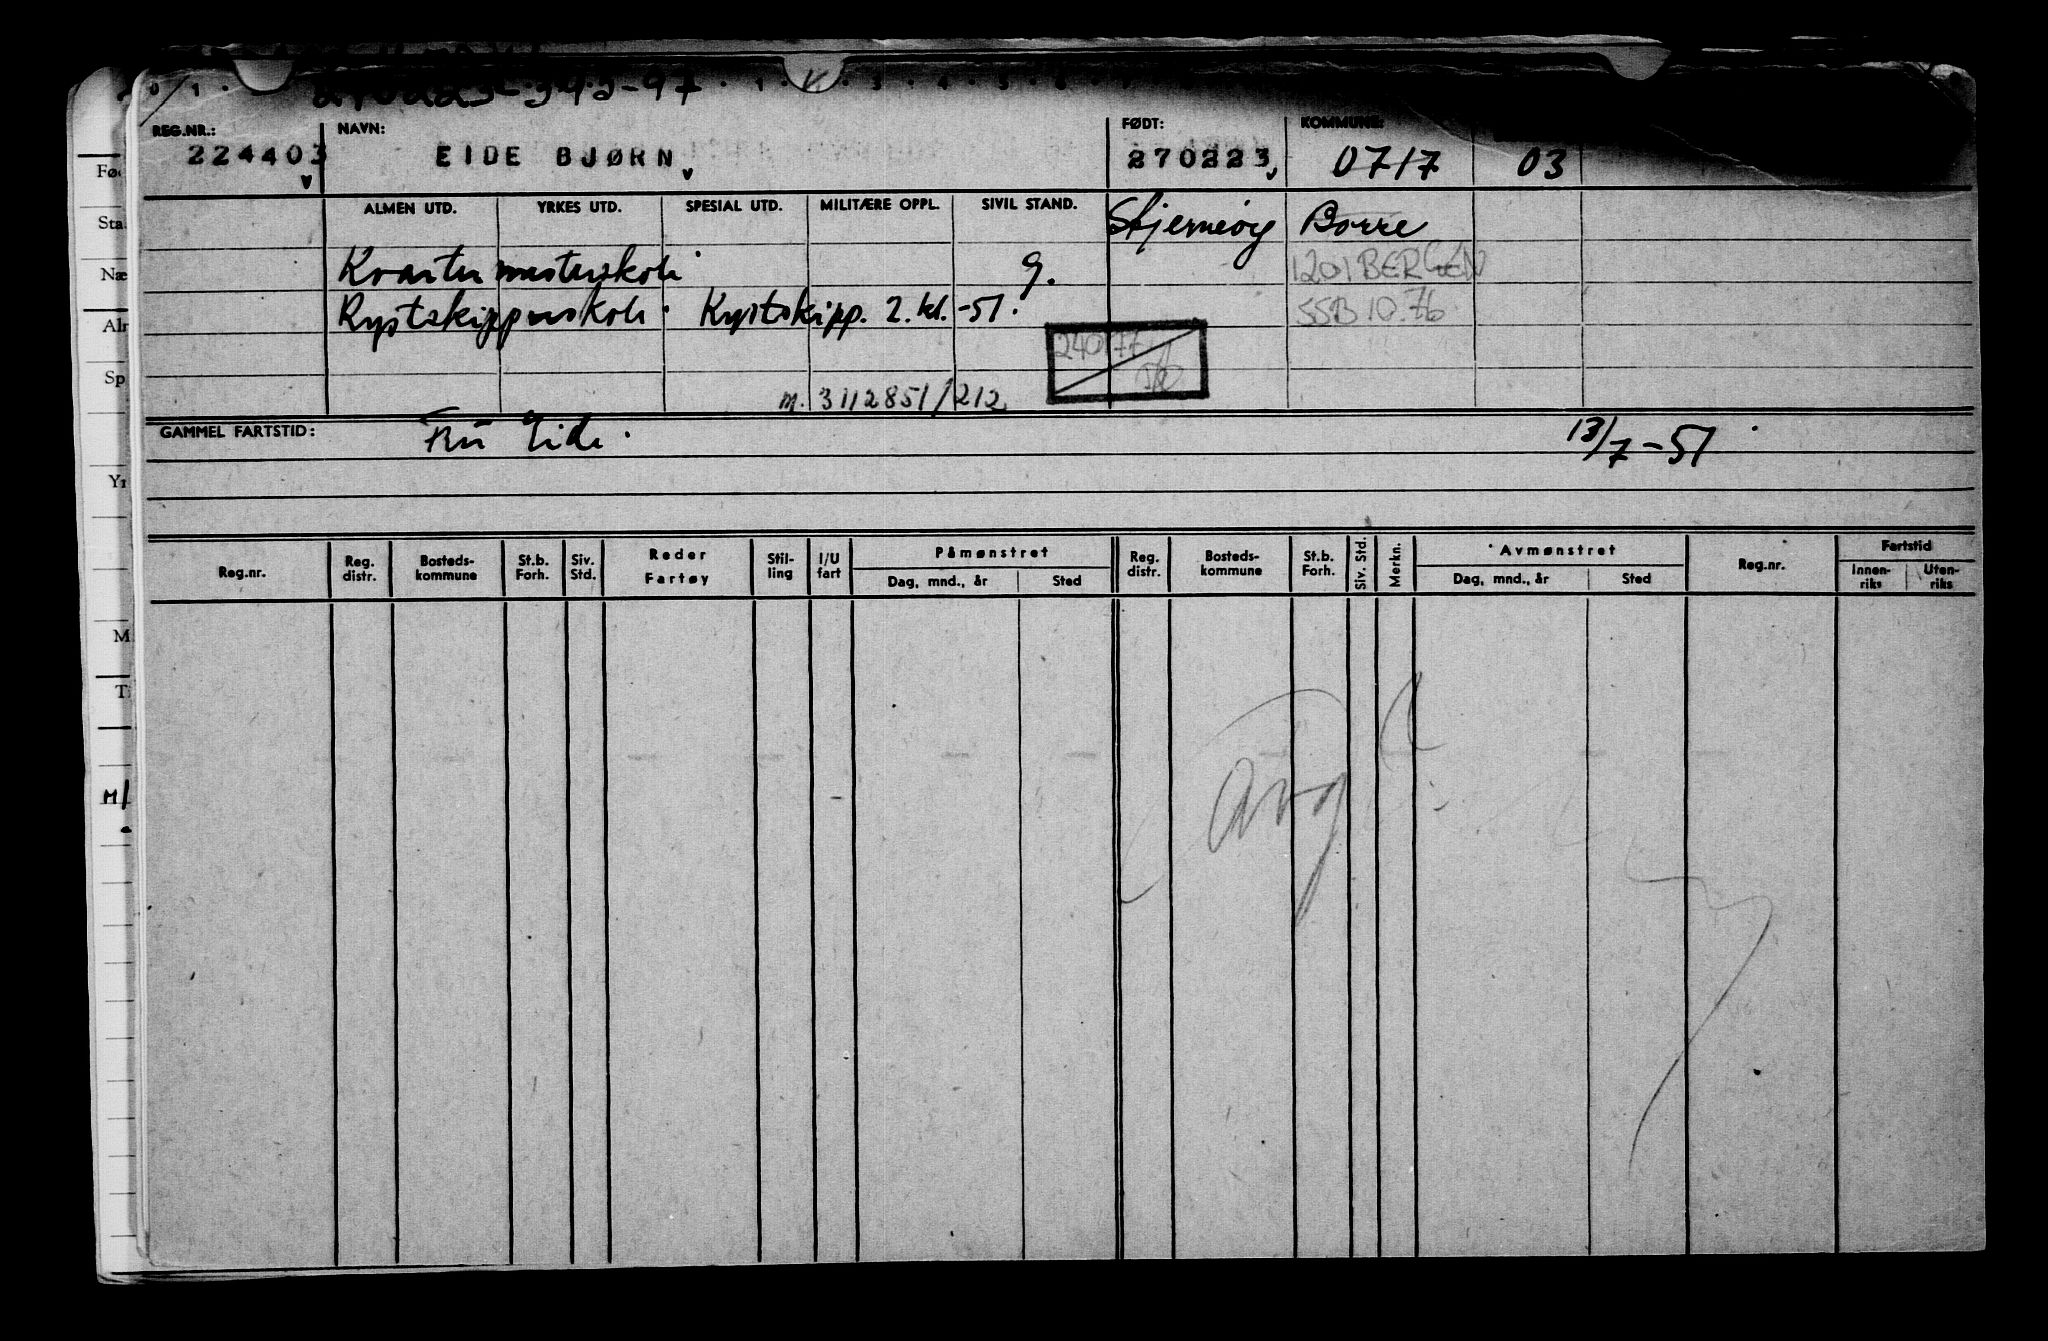 270223-
REG.NR.: NAVN: FØDT: KOMMUNE:
224403 EIDE BJØRN 270223 0717 03
ALMEN UTD. YRKES UTD. SPESIAL UTD. MILITÆRE OPPL. SIVIL STAND. Stjernøy Borre
Kvartermesterskole g. 1201 BERGEN
Kystskipperskole. Kystskipp. 2. kl. -51. SSB 10.76
240177
M. 3112851/212
GAMMEL FARTSTID: Eide 13/7-51
Reg.nr. Reg. distr. Bosteds-kommune St.b. Forh. Siv. Std. Reder Fartøy Stil-ling I/U fart Påmønstret Dag, mnd., år Sted Reg. distr. Bosteds-kommune St.b. Forh. Siv. Std. Merkn. Avmønstret Dag, mnd., år Sted Reg.nr. Fartstid Innen-riks Uten-riks
avg